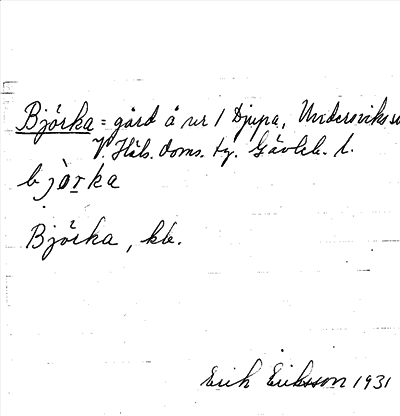 Björka = gård å nr 1 Djupa, Undersviks so
V. Häls. doms. tg. Gävleb. l.
bjòrka
Björka, kb.
Erik Eriksson 1931